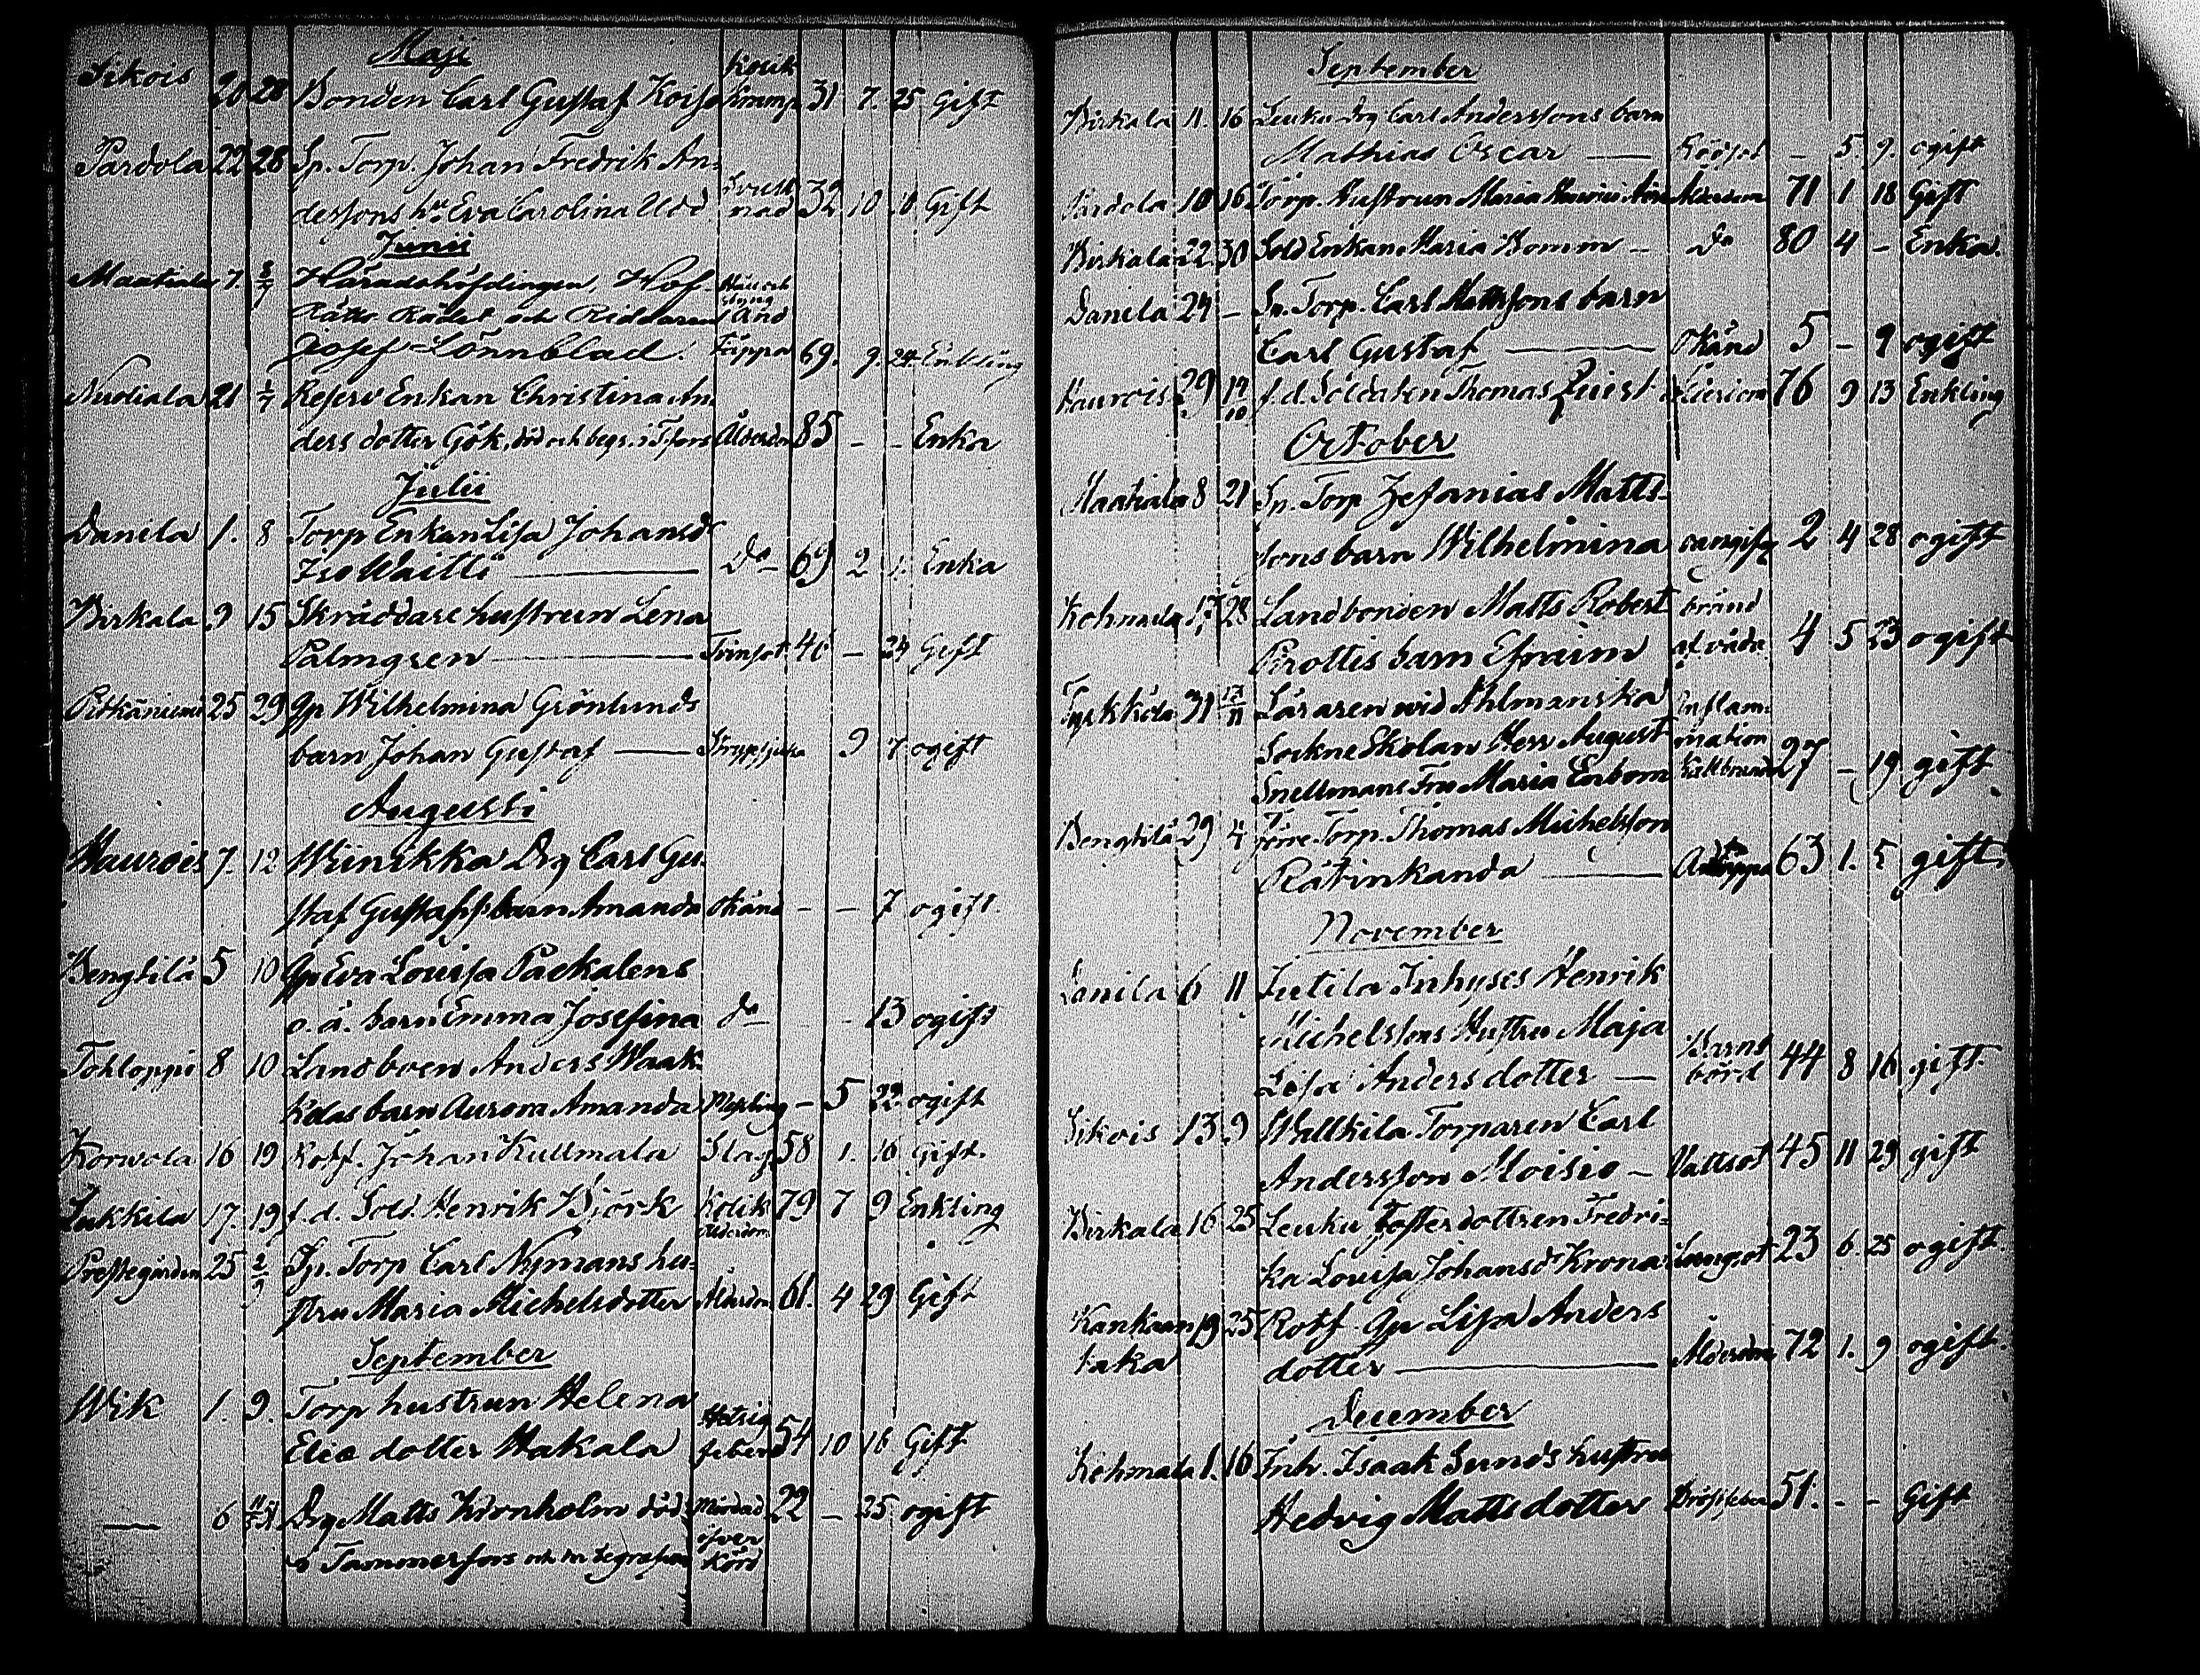 Maji
Sikois 20 28 Bonden Carl Gustaf Koiso Kolik Kramp 31 7. 25 Gift
Pardola 22 28 Sp. Torp. Johan Fredrik An-
derssons hu Eva Carolina Udd 32 10 Gift
Junii
Maatiala 7. 8/7 Häradshöfdingen, Hof-
Rätts Rådet och Riddaren
Josef Lönnblad. 69. 9. 24 Enkling
Nuoliala 21 1/7 Reserv Enkan Christina An
ders dotter Gök, död och begr. i T:fors Ålderdom 85 - - Enka
Julii
Danila 1. 8 Torp Enkan Lisa Johansdr
Iso Waitti Do 69 2 1. Enka
Birkala 9 15 Skräddare hustrun Lena
Palmgren 46 - 24 Gift
Pitkäniemi 25 29 Gp Wilhelmina Grönlunds
barn Johan Gustaf Strypsjuka 9 7 ogift
Augusti
Haurois 7. 12 Winikka Drg Carl Gu-
staf Gustafss barn Amanda okänd - - 7 ogift.
Bengtilä 5 10 Gp Eva Lovisa Packalens
o.ä. barn Emma Josefina do - - 13 ogift
Tohloppi 8 10 Landboen Anders Waak-
kolas barn Aurora Amanda Messling - 5 22 ogift
Korwola 16 19 Rotf. Johan Kullmala Slag 58 1. 16 Gift.
Lukkila 17. 19 f.d. Sold. Henrik Björk Kolik Ålderdom 79 7 9 Enkling
Prestegården 25 2/9 Sp. Torp Carl Nymans hu-
stru Maria Michelsdotter Ålderdom 61. 4 29 Gift
September
Wik 1. 9. Torp hustrun Helena
Elia dotter Hakala Hetsig feber 54 10 16 Gift
— 6 Drg Matts Kronholm död Mördad 22 - 25 ogift
i Tammerfors
September
Birkala 11. 16 Leuku Drg Carl Anderssons barn
Mathias Oscar — - 5. 9. ogift
Pardola 10 16 Torp. Hustrun Maria Ålderdom 71 1 18 Gift
Birkala 22 30 Sold Enkan Maria Bomm — Do 80 4 - Enka.
Danila 24 - Sp. Torp. Carl Mattssons barn
Carl Gustaf — Okänd 5 - 9 ogift
Haurois 29 14/10 f.d. Soldaten Thomas Quist Ålderdom 76 9 13 Enkling
October
Maatiala 8 21 Sp. Torp Zefanias Matts-
sons barn Wilhelmina oangifvet 2 4 28 ogift
Kohmala 17 28 Landbonden Matts Robert bränd
Pirottis barn Efraim af våda 4 5 23 ogift
Tyrkkölä 31 Läraren wid Ahlmanska Inflam-
Sockne Skolan Herr August mation
Snellmans Fru Maria Enbom Kallbrand 27 - 19 gift
Bengtilä 29 4 före Torp. Thomas Michelsson
Rätinkanda 63 1. 5 gift.
November
Danila 6 11 Jutila Inhyses Henrik
Michelssons Hustru Maja
Lisa Anders dotter — Barns börd 44 8 16 gift.
Sikois 13 9 Wallkila Torparen Carl
Andersson Moisio — Vattsot 45 11 29 gift
Birkala 16 25 Leuku Foster dottren Fredri-
ka Lovisa Johansdr Krona Lungsot 23 6. 25 ogift.
Kankaan 19 25 Rotf. Gp Lisa Anders
taka dotter — Ålderdom 72 1. 9 ogift.
December
Kohmala 1. 16 Inh. Isaak Sunds hustru
Hedvig Matts dotter Bröstfeber 51. - - Gift